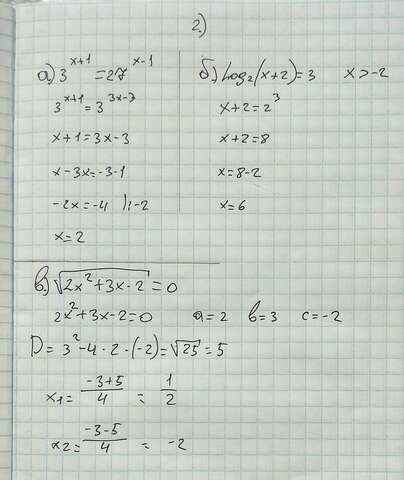 2.)
а) 3^(x+1) = 27^(x-1)
3^(x+1) = 3^(3x-3)
x+1 = 3x-3
x-3x = -3-1
-2x = -4 |:-2
x = 2
б) Log₂(x+2) = 3 x > -2
x+2 = 2³
x+2 = 8
x = 8-2
x = 6
в.) √(2x²+3x-2) = 0
2x²+3x-2 = 0 a = 2 b = 3 c = -2
D = 3²-4·2·(-2) = √25 = 5
x₁ = (-3+5)/4 = 1/2
x₂ = (-3-5)/4 = -2